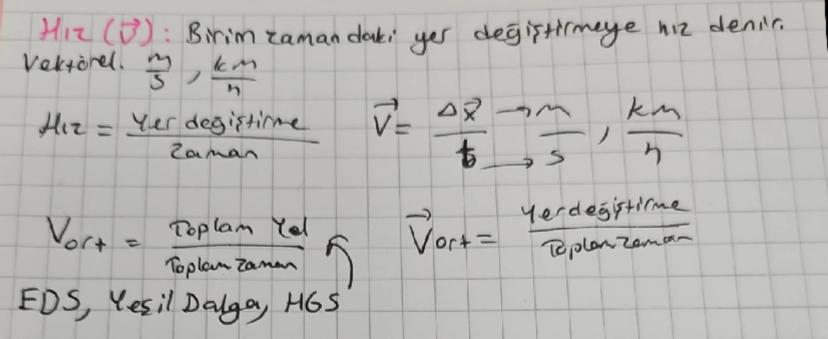 Hız (V⃗): Birim zamandaki yer değiştirmeye hız denir.
Vektörel. m/s, km/h
Hız = Yer degiştirme / Zaman    V⃗ = Δx⃗ / t → m / → s, km/h
Vort = Toplam Yol / Toplam Zaman    V⃗ort = Yerdeğiştirme / Toplam zaman
EDS, Yeşil Dalga, HGS